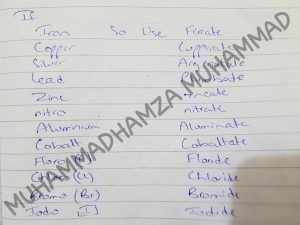 If
Iron So Use Ferrate
Copper Cupperate
Silver Argentate
Lead Plumbate
Zinc Zincate
nitro nitrate
Aluminium Aluminate
Cobalt Cobaltate
Floro Floride
Chloro (Cl) Chloride
Bromo (Br) Bromide
Iodo (I) Iodide
MUHAMMADHAMZA.MUHAMMAD